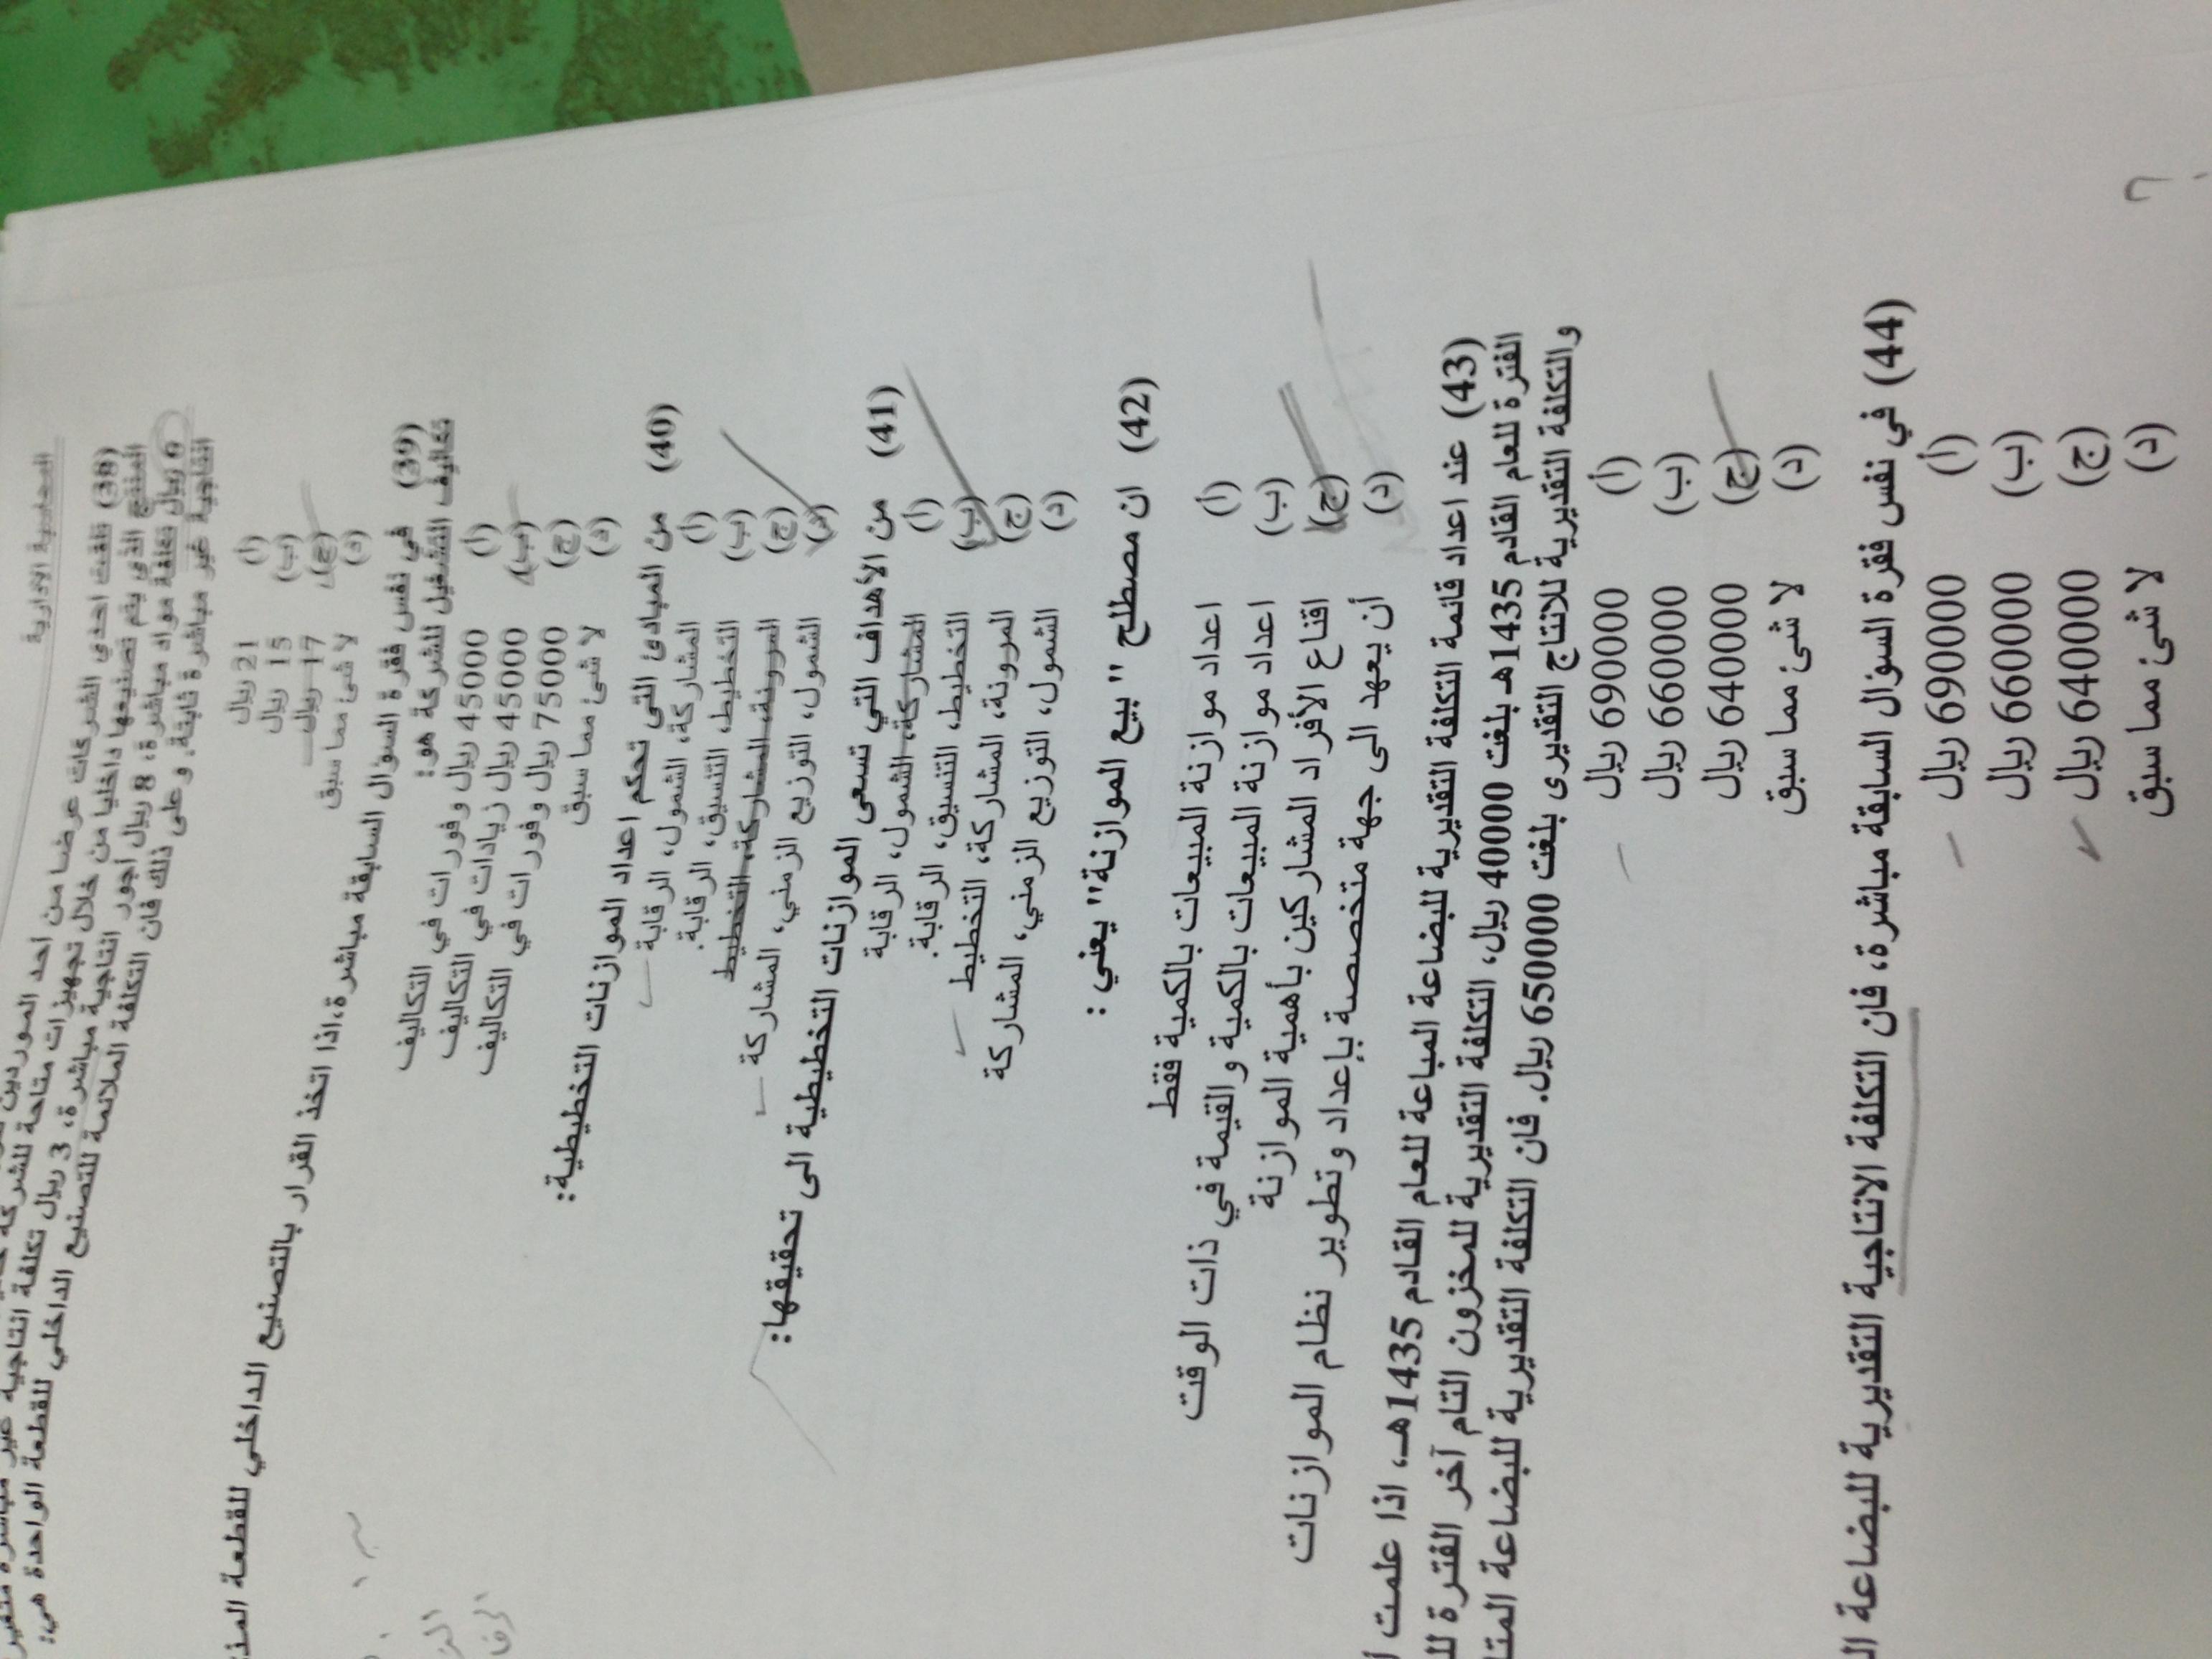 المحاسبة الادارية
(38) تلقت احدى الشركات عرضا من احد الموردين
المنتج الذي يتم تصنيعها داخليا من خلال تجهيزات متاحة للشركة
9 ريال تكلفة مواد مباشرة، 8 ريال أجور انتاجية مباشرة، 3 ريال تكلفة انتاجية غير مباشرة متغيرة
انتاجية غير مباشرة ثابتة. وعلى ذلك فان التكلفة الملائمة للتصنيع الداخلي للقطعة الواحدة هي:
(أ) 21 ريال
(ب) 15 ريال
(ج) 17 ريال
(د) لا شئ مما سبق
(39) في نفس فقرة السؤال السابقة مباشرة، اذا اتخذ القرار بالتصنيع الداخلي للقطعة
تكاليف التشغيل للشركة هو:
(أ) 45000 ريال وفورات في التكاليف
(ب) 45000 ريال زيادات في التكاليف
(ج) 75000 ريال وفورات في التكاليف
(د) لا شئ مما سبق
(40) من المبادئ التي تحكم اعداد الموازنات التخطيطية:
(أ) المشاركة، الشمول، الرقابة
(ب) التخطيط، التنسيق، الرقابة.
(ج) المرونة، المشاركة، التخطيط
(د) الشمول، التوزيع الزمني، المشاركة
(41) من الأهداف التي تسعى الموازنات التخطيطية الى تحقيقها:
(أ) المشاركة، الشمول، الرقابة
(ب) التخطيط، التنسيق، الرقابة.
(ج) المرونة، المشاركة، التخطيط
(د) الشمول، التوزيع الزمني، المشاركة
(42) ان مصطلح "بيع الموازنة" يعني :
(أ) اعداد موازنة المبيعات بالكمية فقط
(ب) اعداد موازنة المبيعات بالكمية والقيمة في ذات الوقت
(ج) اقناع الأفراد المشاركين بأهمية الموازنة
(د) أن يعهد الى جهة متخصصة بإعداد وتطوير نظام الموازنات
(43) عند اعداد قائمة التكلفة التقديرية للبضاعة المباعة للعام القادم 1435هـ، اذا علمت
الفترة للعام القادم 1435هـ بلغت 40000 ريال، التكلفة التقديرية للمخزون التام آخر الفترة
والتكلفة التقديرية للانتاج التقديرى بلغت 650000 ريال. فان التكلفة التقديرية للبضاعة
(أ) 690000 ريال
(ب) 660000 ريال
(ج) 640000 ريال
(د) لا شئ مما سبق
(44) في نفس فقرة السؤال السابقة مباشرة، فان التكلفة الانتاجية التقديرية للبضاعة
(أ) 690000 ريال
(ب) 660000 ريال
(ج) 640000 ريال
(د) لا شئ مما سبق